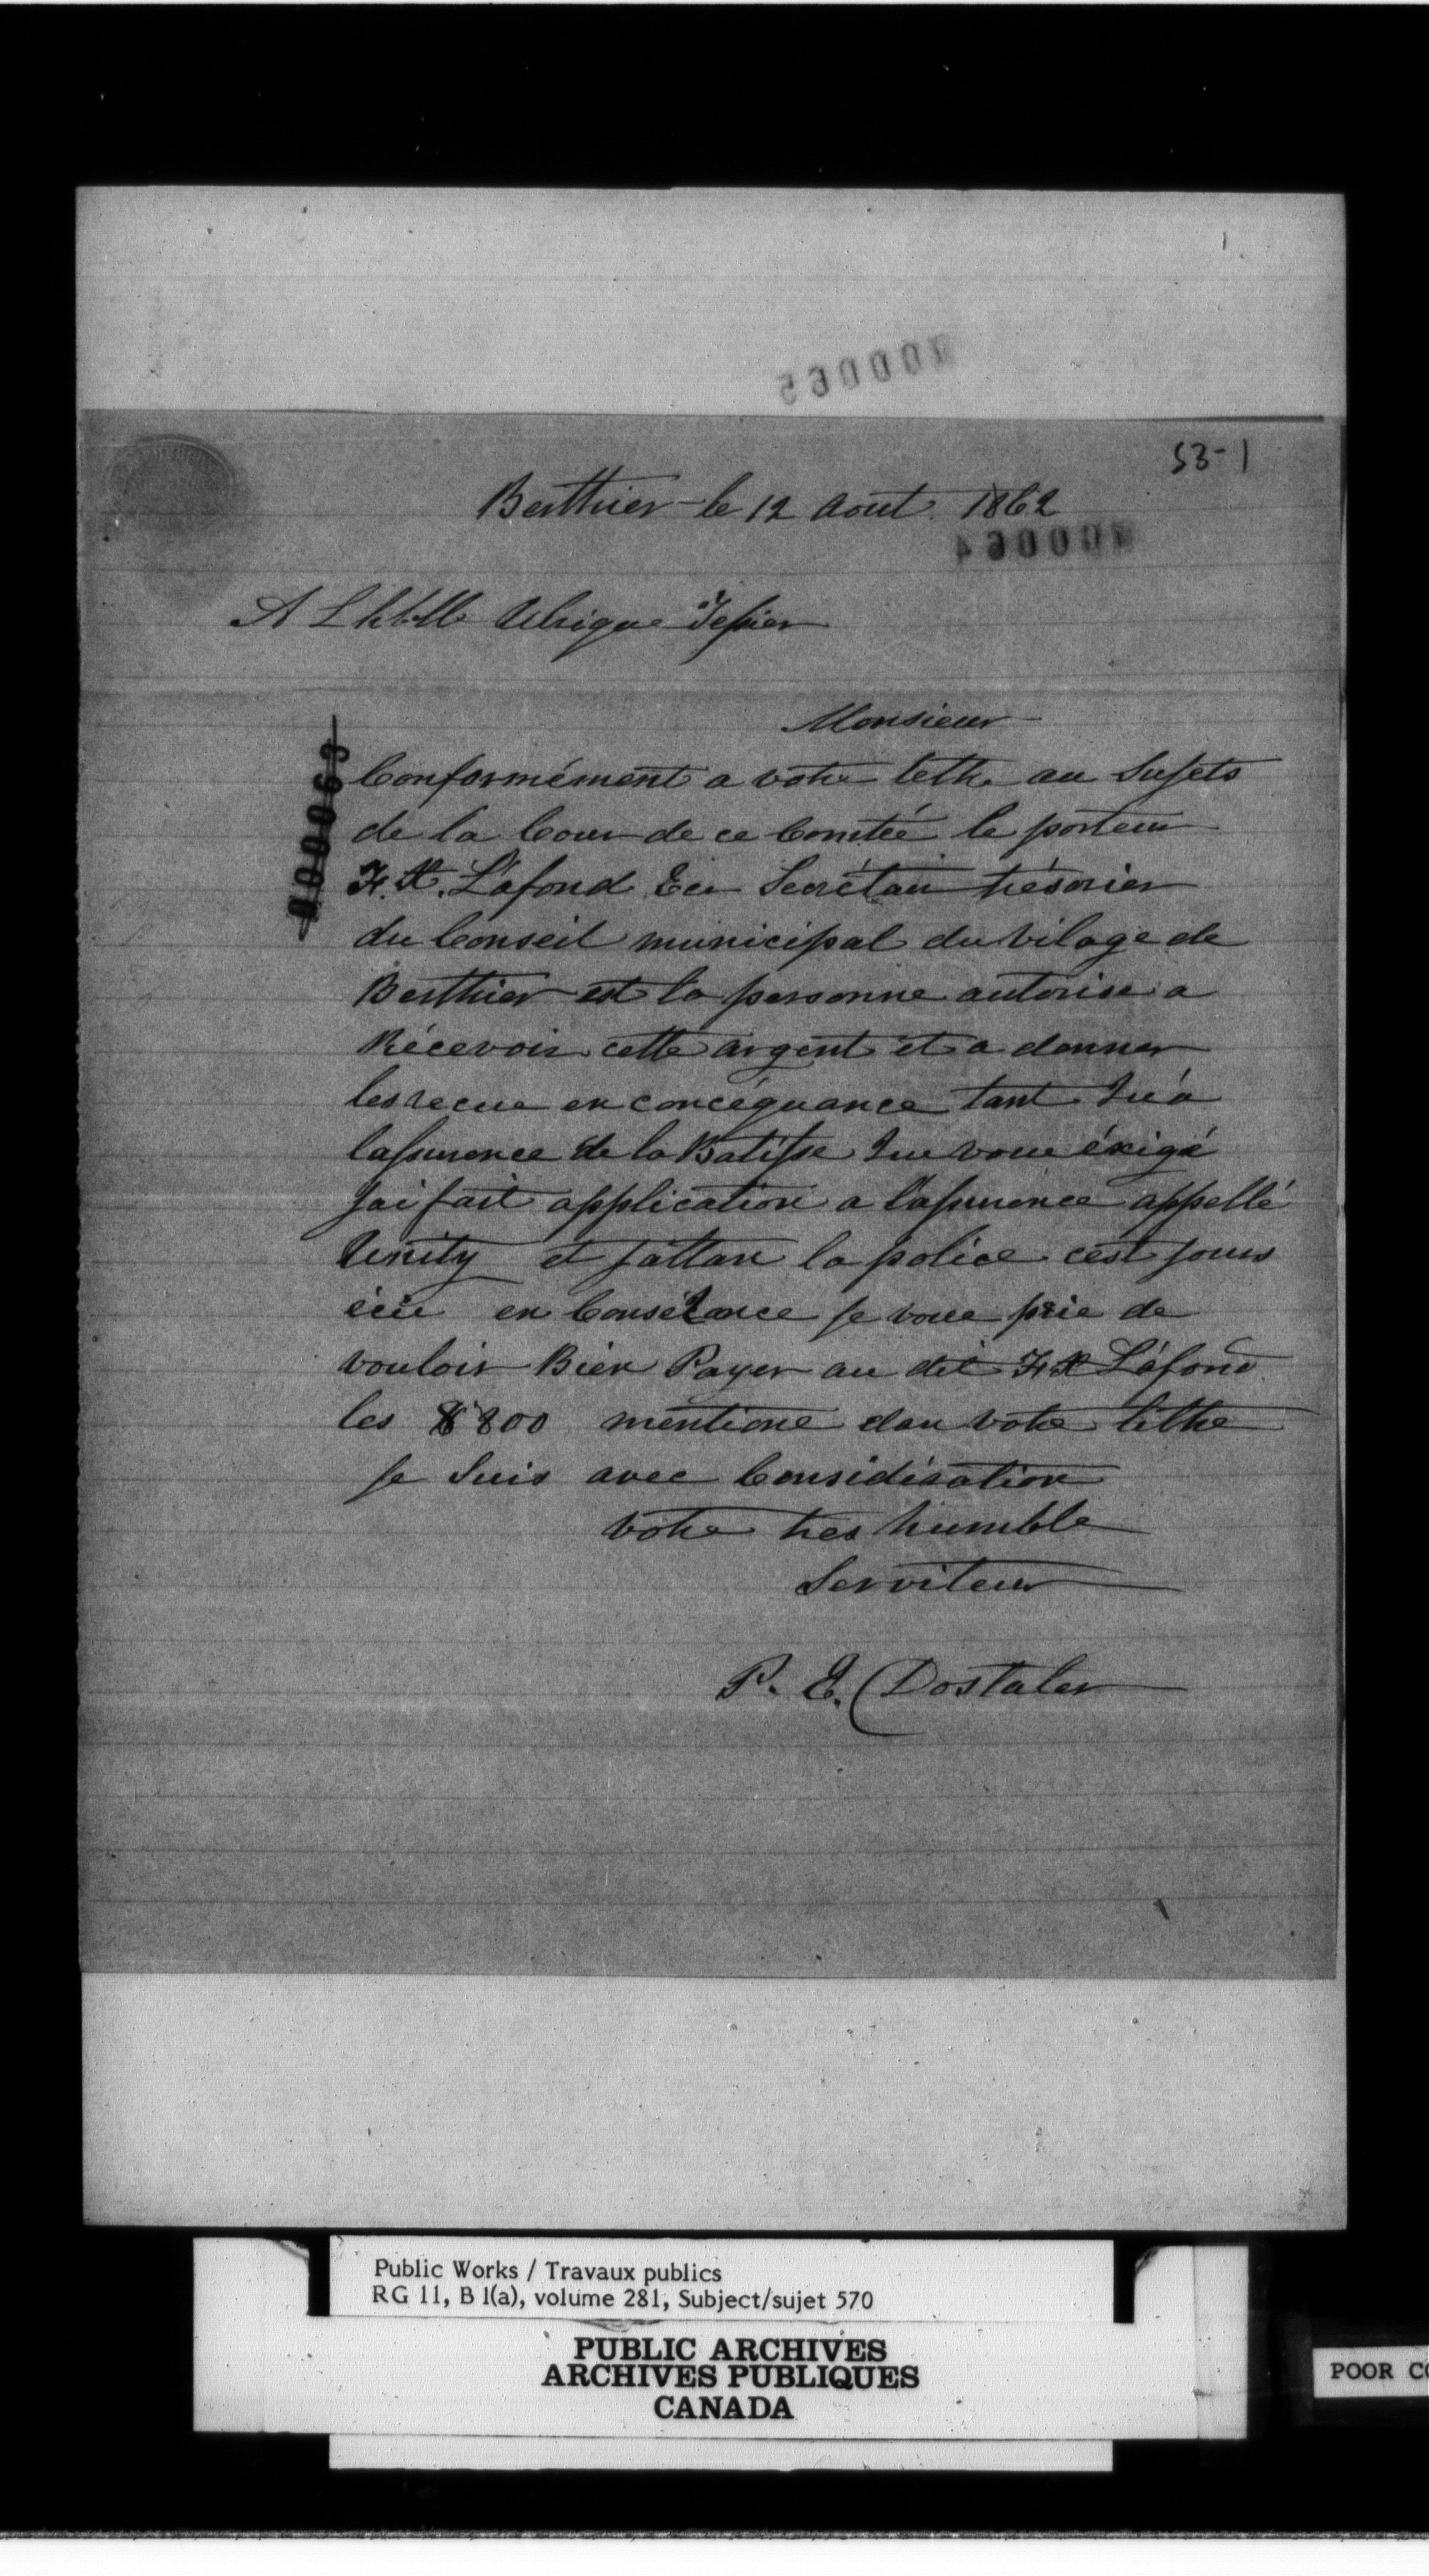 000065
53-1
Berthier le 12 Aout 1862
000064
A Lhble Ulrique Tessier
Monsieur
000063
Conformément a votre lettre au Sujets
de la Cour de ce Comtée le porteur
F. X. Láfond Ecr Secrétair trésorier
du Conseil municipal du vilage de
Berthier est la personne autorise a
Récevoir cette argent et a donner
les recue en concéquance tant Qu'a
lassurence de la Batisse Que voue éxigé
Jai fait application a l'assurence appellé
Unity et Jattan la police cest jours
icie en Conséqance je voue prie de
vouloir Bien Payer au dit F X Láfond
les $800 mentione dan votre lettre
je Suis avec Considération
votre tres humble
Serviteur
P. E. Dostaler
Public Works / Travaux publics
RG 11, B 1(a), volume 281, Subject/sujet 570
PUBLIC ARCHIVES
ARCHIVES PUBLIQUES
CANADA
POOR CO